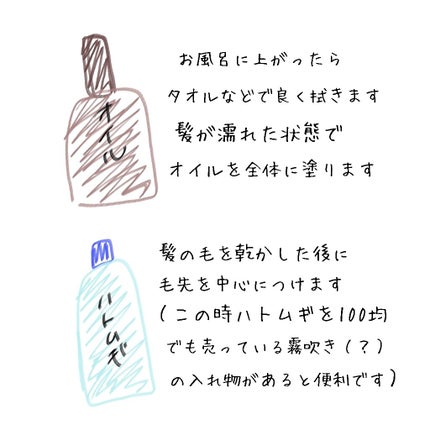 オイル
お風呂に上がったら
タオルなどで良く拭きます
髪が濡れた状態で
オイルを全体に塗ります
ハトムギ
髪の毛を乾かした後に
毛先を中心につけます
(この時ハトムギを100均
でも売っている霧吹き(?)
の入れ物があると便利です)